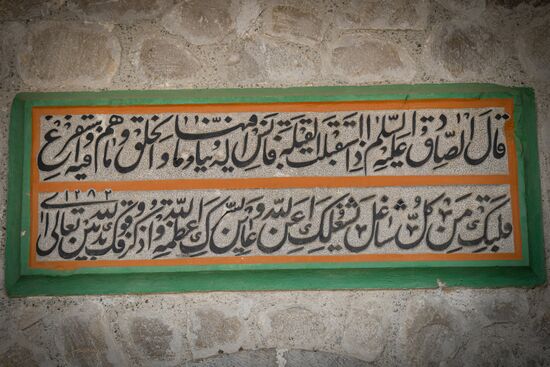 قال الصادق علیه السلام اذا استقبلت القبلة فآیس من الدنیا و ما فیها و الخلق و ما هم فیه و استفرغ
قلبک من کل شاغل یشغلک عن الله و عاین بسرک عظمة الله و اذکر وقوفک بین یدیه تعالی ۱۲۸۲